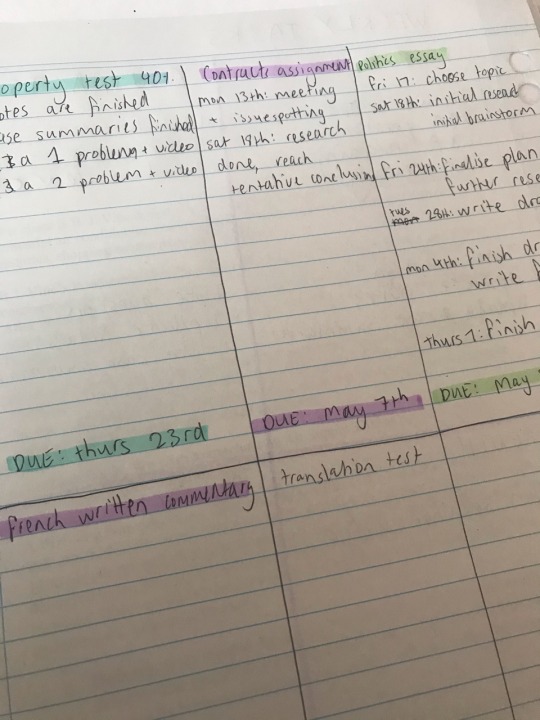 operty test 40%
otes are finished
use summaries finished
3 a 1 problem + video
3 a 2 problem + video
DUE: thurs 23rd
Contracts assignment
mon 13th: meeting
+ issuespotting
sat 18th: research
done, reach
tentative conclusions
DUE: may 7th
politics essay
fri 17: choose topic
sat 18th: initial resear
initial brainstorm
fri 24th: finalise plan
further rese
tues 28th: write dra
mon 4th: finish dr
write
thurs 7: finish
DUE: May
french written commentary
translation test